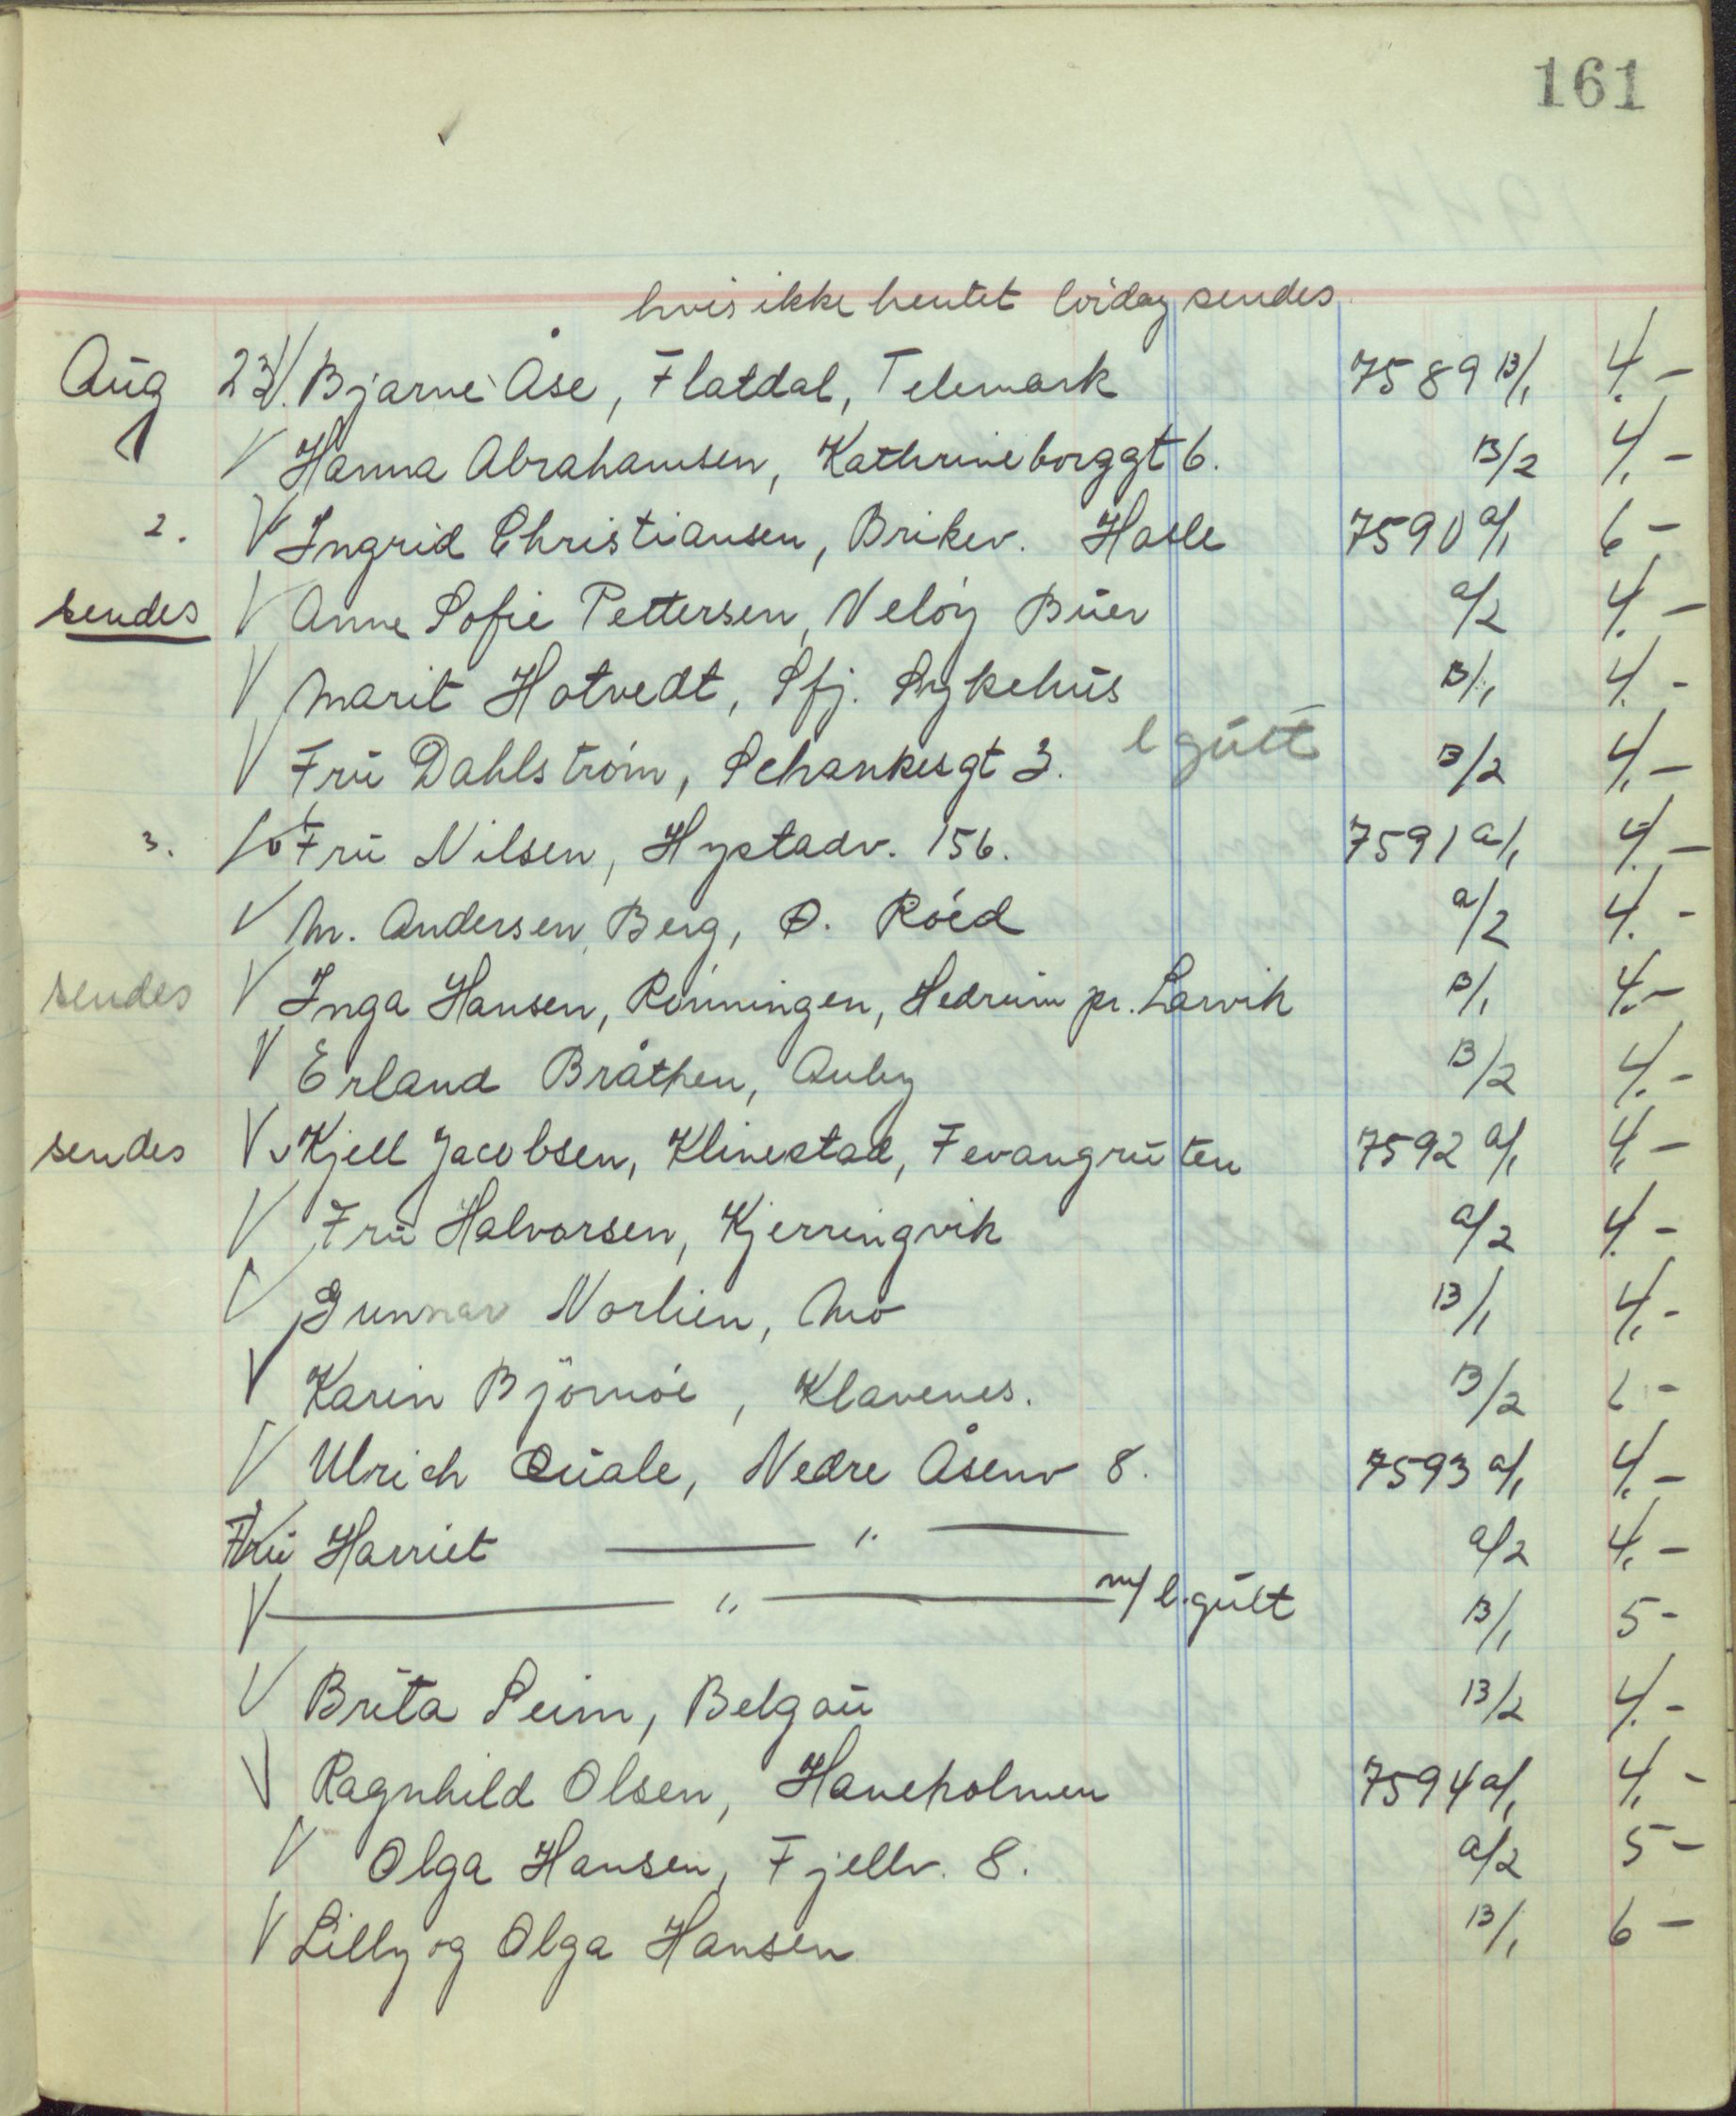 161
hvis ikke hentet lördag sendes
Aug 23 V. Bjarne Åse, Flatdal, Telemark 7589 B/1 4.-
V Hanna Abrahamsen, Kathrineborggt 6. B/2 4.-
2. V Ingrid Christiansen, Brikev. Hasle 7590 a/1 6-
sendes V Anne Sofie Pettersen, Velöy Buer a/2 4.-
V Marit Hotvedt, Sfj. Sykehus B/1 4.-
V Fru Dahlström, Schankesgt 3. l gutt B/2 4.-
3. V Fru Nilsen, Hystadv. 156. 7591 a/1 4.-
V M. Andersen, Berg, Ö. Röed a/2 4.-
sendes V Inga Hansen, Rönningen, Hedrum pr. Larvik B/1 4.-
V Erland Bråthen, Auby B/2 4.-
sendes V Kjell Jacobsen, Klinestad, Fevangruten 7592 a/1 4.-
V Fru Halvorsen, Kjerringvik a/2 4.-
V Gunnar Norlien, Mo B/1 4.-
V Karin Björnöe, Klavenes. B/2 -
V Ulrich Quale, Nedre Åsenv 8. 7593 a/1 4.-
Fru Harriet — " — a/2 4.-
V — " — m/ l. gutt B/1 5-
V Brita Seim, Belgau B/2 4.-
V Ragnhild Olsen, Haneholmen 7594 a/1 4.-
V Olga Hansen, Fjellv. 8. a/2 5-
V Lilly og Olga Hansen B/1 6-